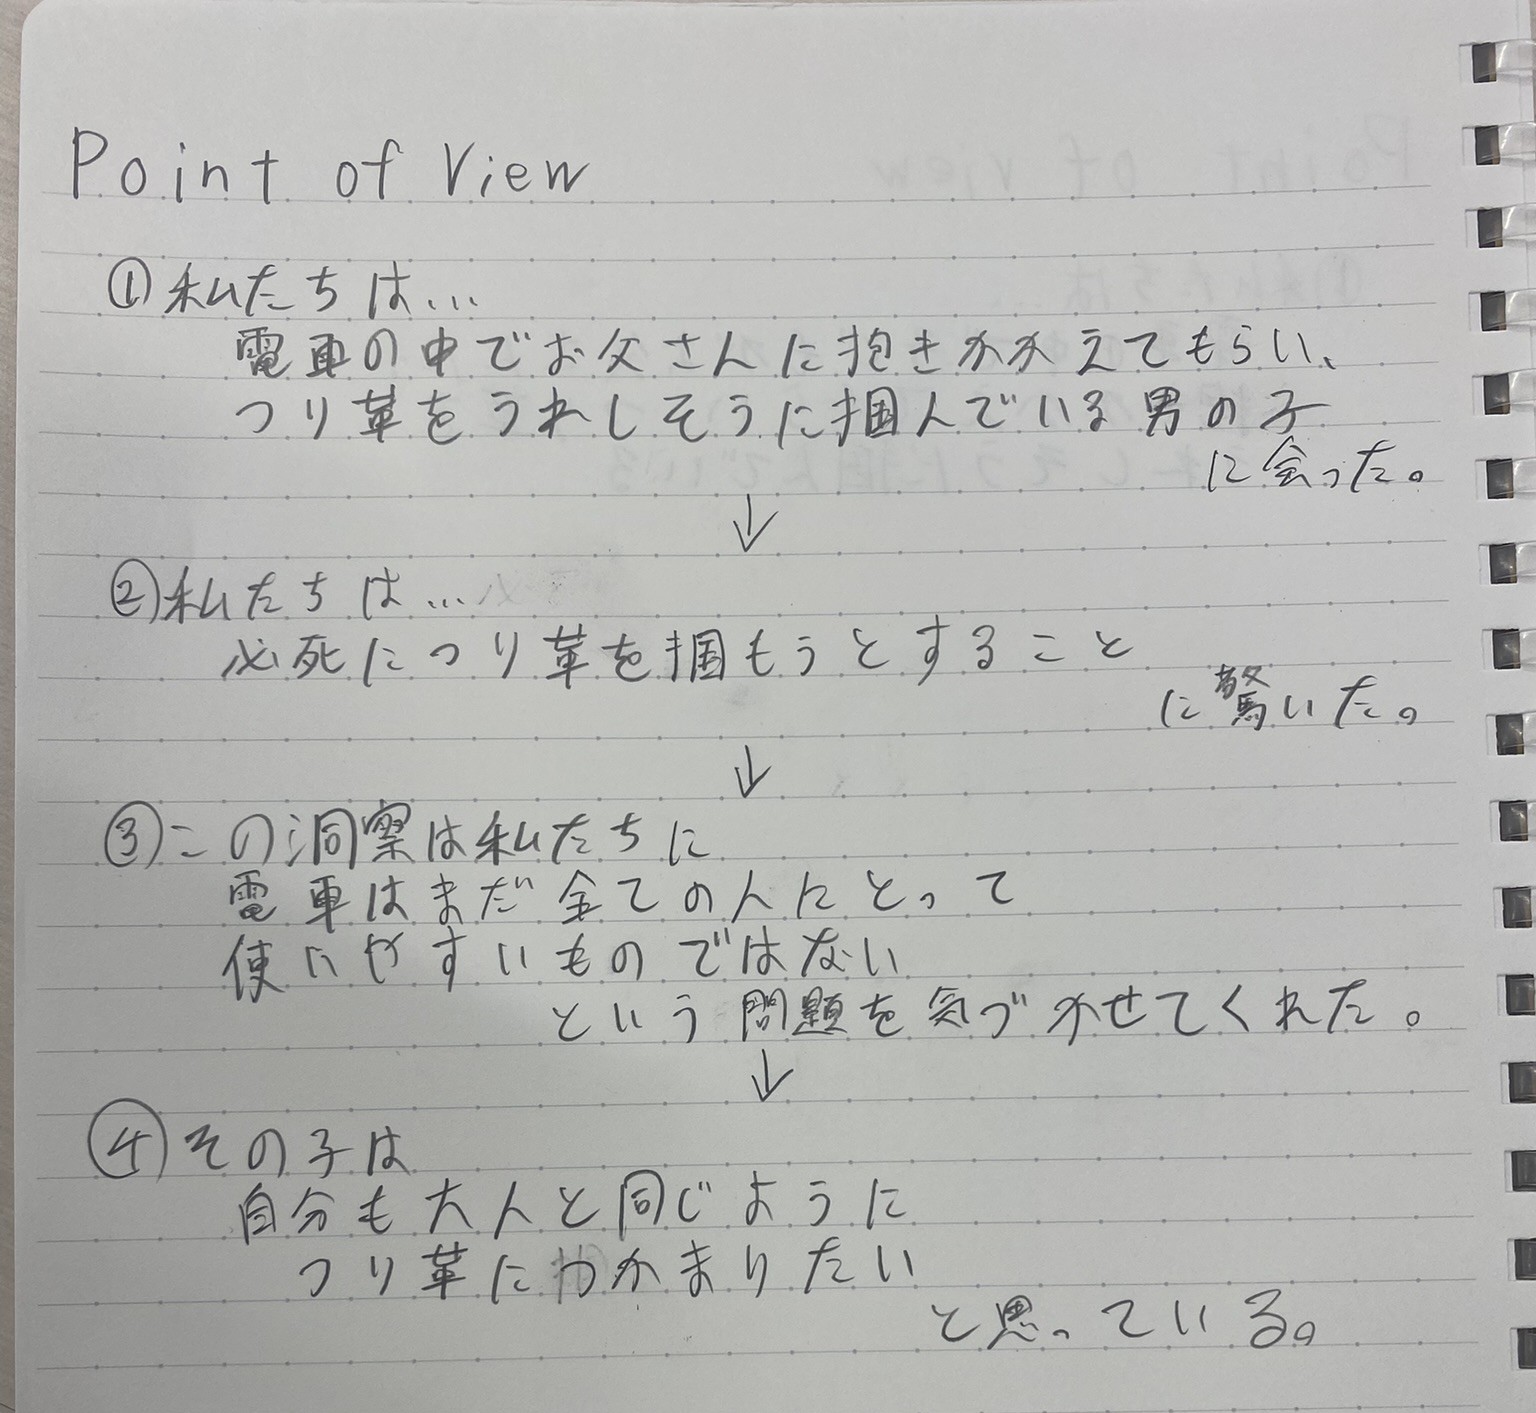 Point of View
①私たちは…
電車の中でお父さんに抱きかかえてもらい、
つり革をうれしそうに掴んでいる男の子
に会った。
↓
②私たちは…
必死につり革を掴もうとすること
に驚いた。
↓
③この洞察は私たちに
電車はまだ全ての人にとって
使いやすいものではない
という問題を気づかせてくれた。
↓
④その子は
自分も大人と同じように
つり革につかまりたい
と思っている。